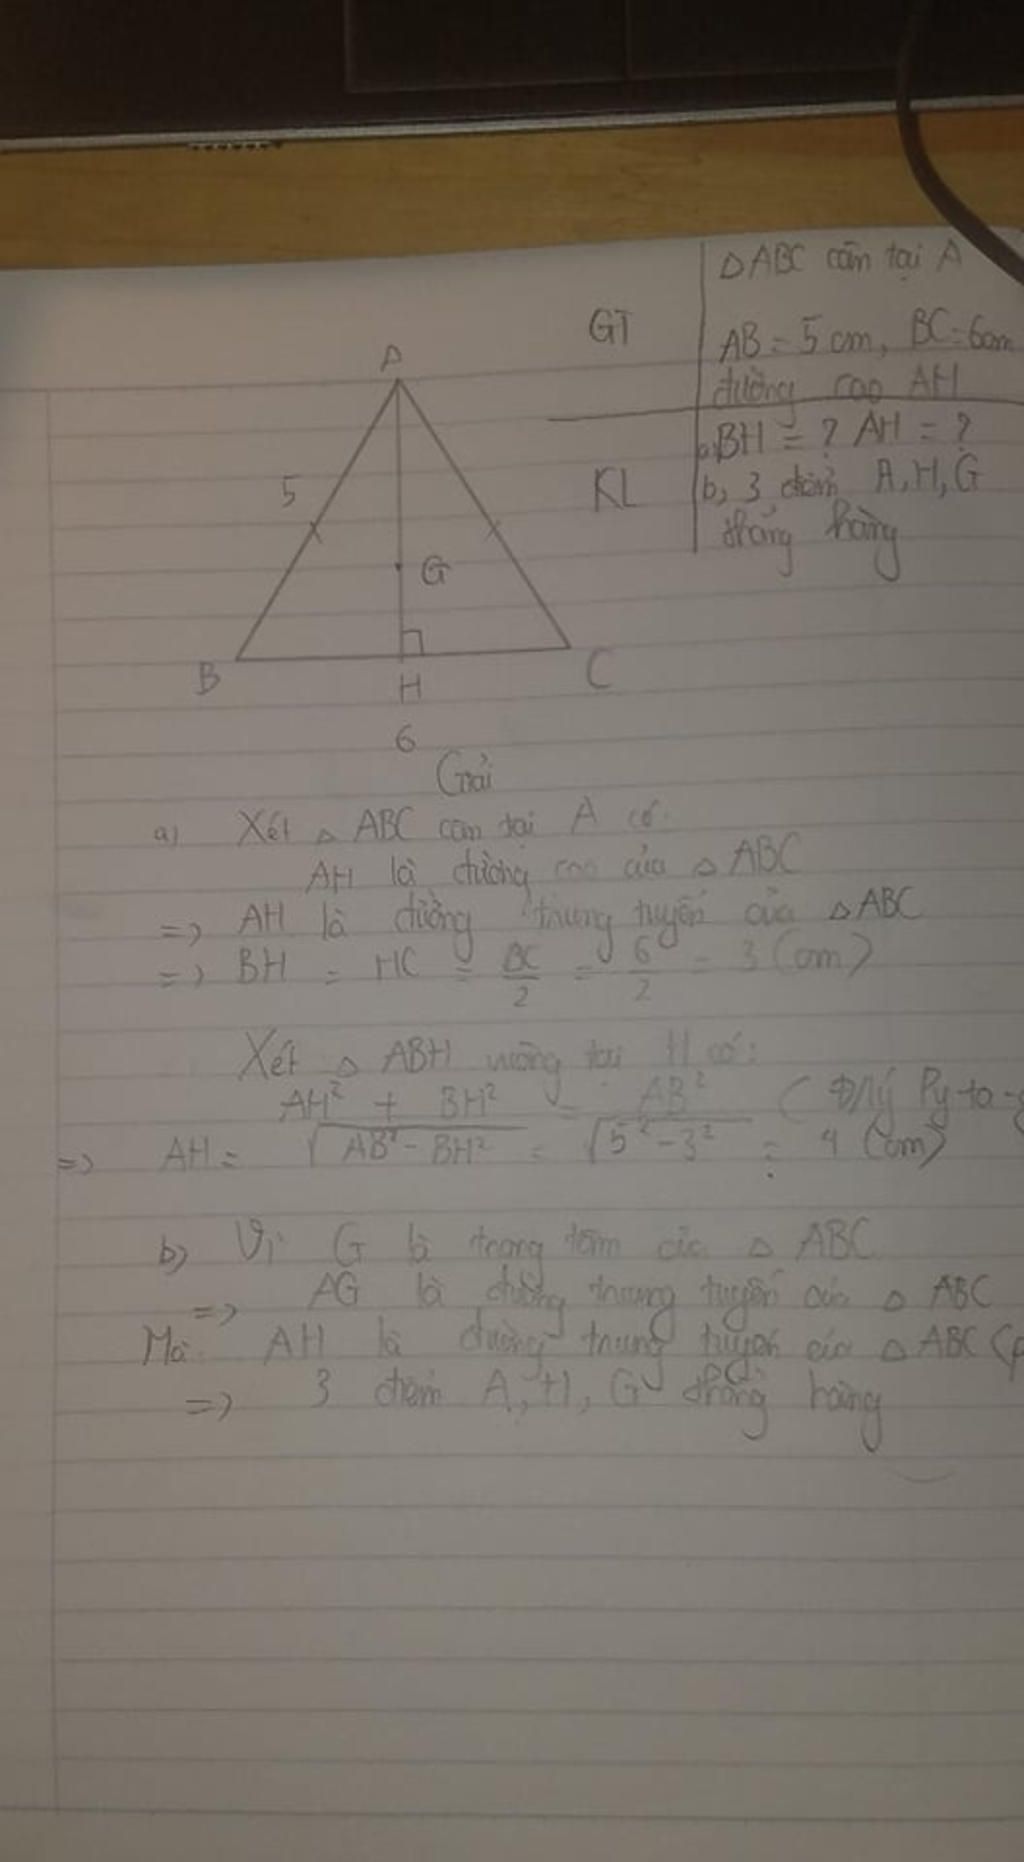 △ABC cân tại A
GT
AB = 5 cm, BC = 6cm
đường cao AH
a, BH = ? AH = ?
KL
b, 3 điểm A, H, G
thẳng hàng
A
5
G
B
H
C
6
Giải
a) Xét △ ABC cân tại A có
AH là đường cao của △ ABC
=> AH là đường trung tuyến của △ ABC
=> BH = HC = BC/2 = 6/2 = 3 (cm)
Xét △ ABH vuông tại H có:
AH² + BH² = AB² (Đ/lý Py-ta-
=> AH = √AB² - BH² = √5² - 3² = 4 (cm)
b) Vì G là trọng tâm của △ ABC
=> AG là đường trung tuyến của △ ABC
Mà AH là đường trung tuyến của △ ABC (
=> 3 điểm A, H, G thẳng hàng